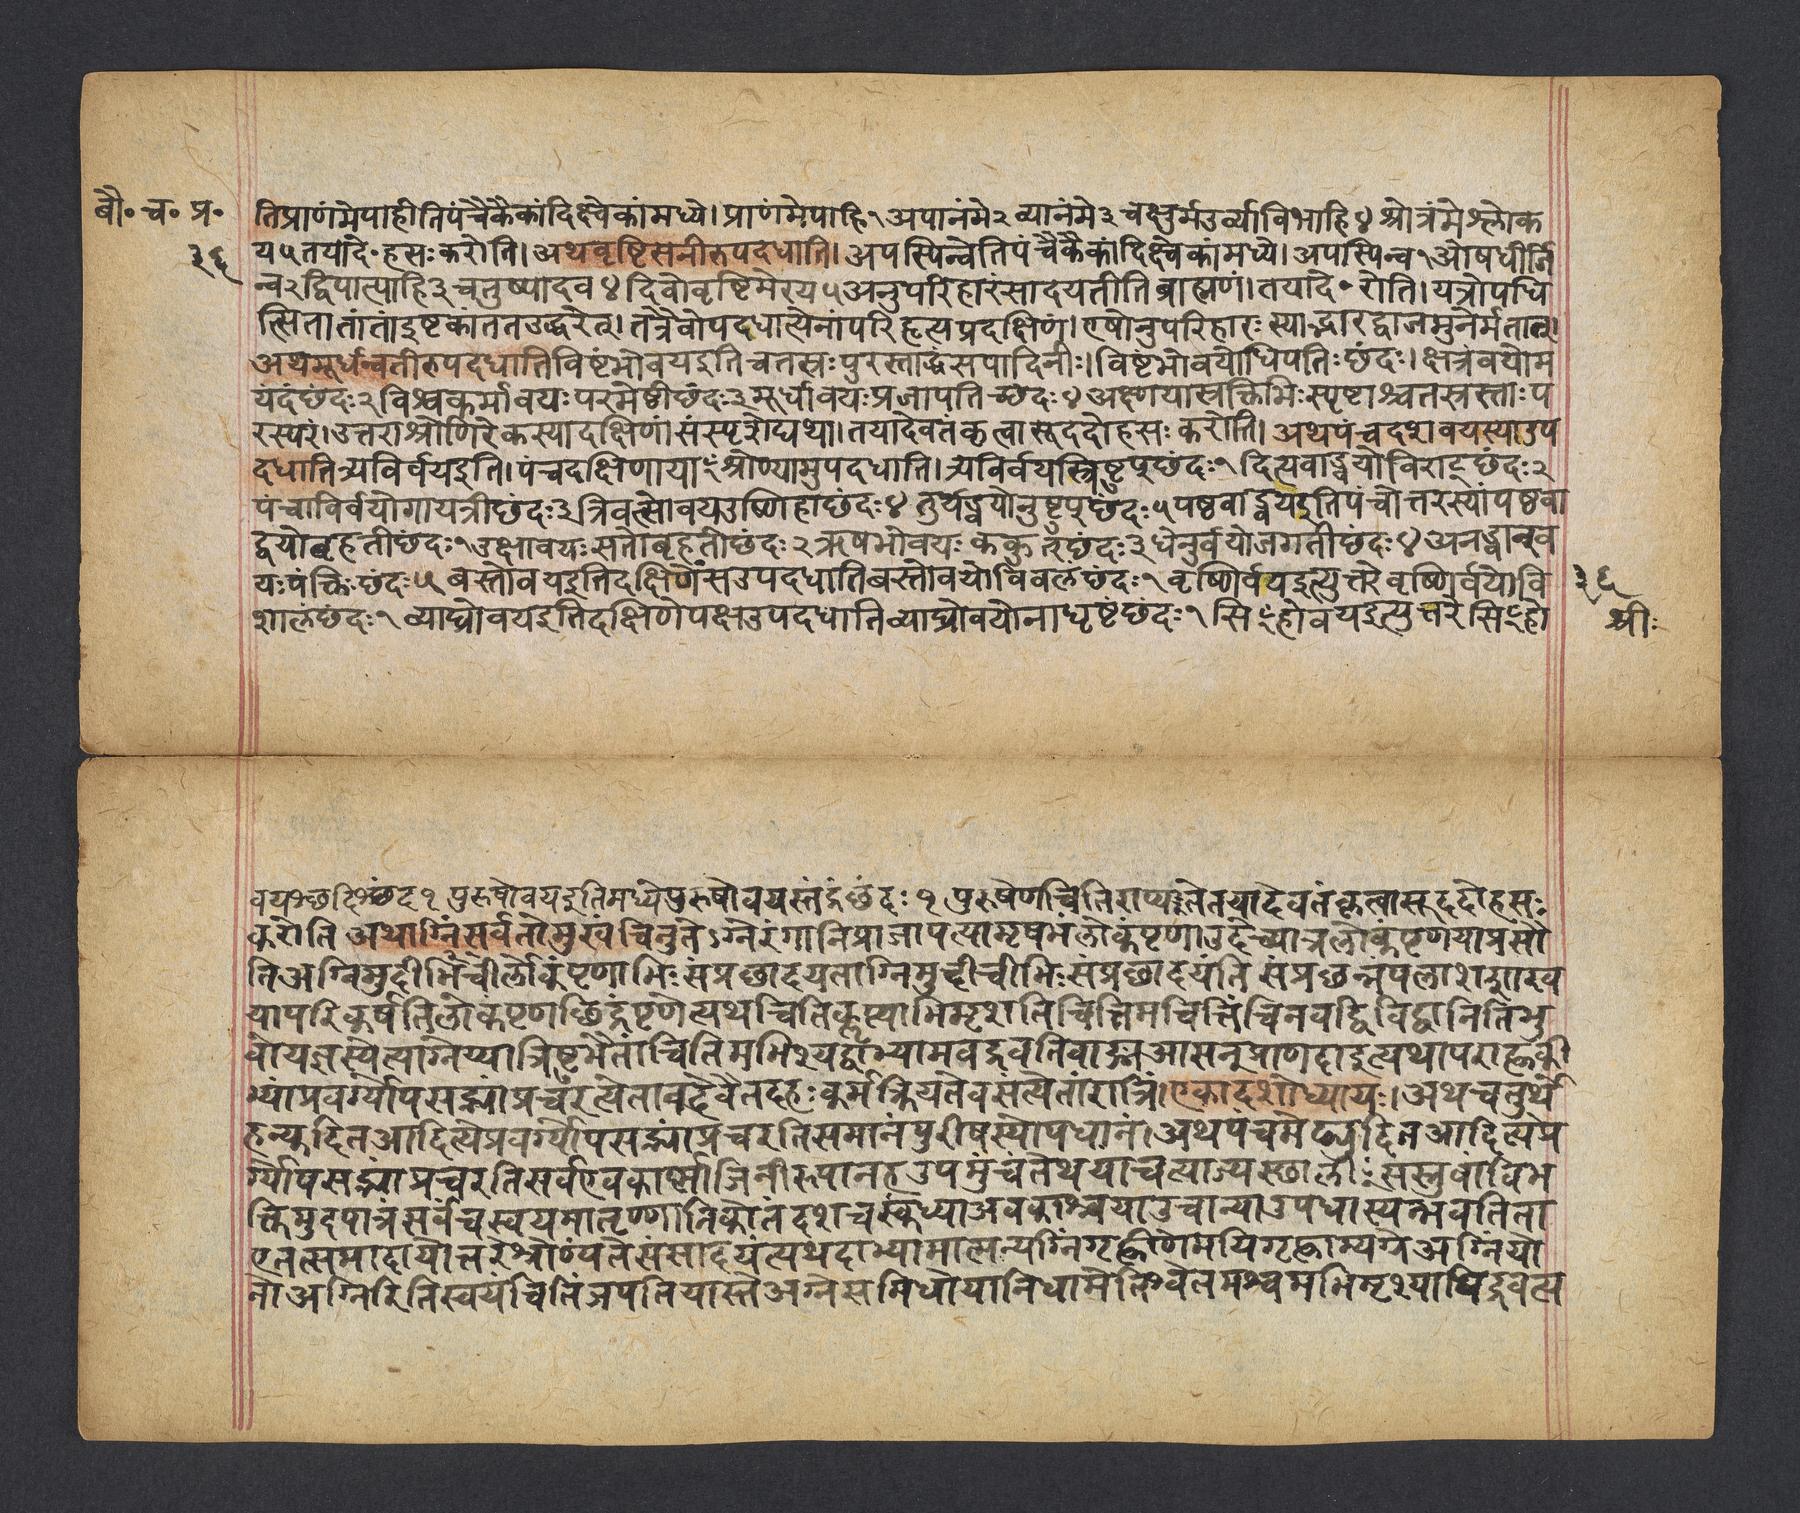 बौ॰ च॰ प्र॰
३६
तिप्राणंमेपाहीतिपंचैकैकांदिक्ष्वेकांमध्ये। प्राणंमेपाहि१अपानंमे२व्यानंमे३चक्षुर्मउर्व्याविभाहि४श्रोत्रंमेश्लोक
य५तयादे॰हसःकरोति। अथवृष्टिसनीरुपदधाति। अपस्पिन्वेतिपंचैकैकांदिक्ष्वेकांमध्ये। अपस्पिन्व१ओषधीर्जि
न्व२द्विपात्पाहि३चतुष्पादव४दिवोवृष्टिमेरय५अनुपरिहारंसादयतीतिब्राह्मणं। तयादे॰रोति। यत्रोपधि
त्सितातांतांइष्टकांततउद्धरेत्। तत्रैवोपदधात्येनांपरिहृत्यप्रदक्षिणं। एषोनुपरिहारःस्याद्भारद्वाजमुनेर्मतात्।
अथमूर्धन्वतीरुपदधातिविष्टंभोवयइतिचतस्रःपुरस्तार्द्धसपादिनीः। विष्टंभोवयोधिपतिःछंदः। क्षत्रंवयोम
यंदंछंदः२विश्वकर्मावयःपरमेष्ठीछंदः३मूर्धावयःप्रजापतिच्छंदः४अक्ष्णयास्रक्तिभिःस्पृष्टाश्चतस्रस्ताःप
रस्परं। उत्तराश्रोणिरेकस्यादक्षिणांसंस्पृशेद्यथा। तयादेवतंकृत्वासूददोहसःकरोति। अथपंचदशवयस्याउप
दधातित्र्यविर्वयइति। पंचदक्षिणाया२ंश्रोण्यामुपदधाति। त्र्यविर्वयस्त्रिष्टुप्छंदः१दित्यवाड्वयोविराट्छंदः२
पंचाविर्वयोगायत्रीछंदः३त्रिवत्सोवयउष्णिहाछंदः४तुर्यवाड्वयोनुष्टुप्छंदः५पष्ठवाड्वयइतिपंचोत्तरस्यांपष्ठवा
ड्वयोबृहतीछंदः१उक्षावयःसतोबृहतीछंदः२ऋषभोवयःककुत्छंदः३धेनुर्वयोजगतीछंदः४अनड्वान्व
यःपंक्तिःछंदः५बस्तोवयइतिदक्षिणेंसउपदधातिबस्तोवयोविवलंछंदः१वृष्णिर्वयइत्युत्तरेवृष्णिर्वयोवि
शालंछंदः१व्याघ्रोवयइतिदक्षिणेपक्षउपदधातिव्याघ्रोवयोनाधृष्टंछंदः१सि२ंहोवयइत्युत्तरेसि२ंहो
३६
श्रीः
वयश्छदिश्छंद१पुरुषोवयइतिमध्येपुरुषोवयस्तंद्रंछंदः१पुरुषेणचितिराप्यतेतयादेवतंकृत्वासूददोहसः
करोति अथाग्निंसर्वतोमुखंचिनुतेऽग्नेरंगानिप्राजापत्यामृषभंलोकंपृणाउदच्यात्रलोकंपृणयाप्रसौ
तिअग्निमुदीभिंचीर्लोकंपृणाभिःसंप्रछादयताग्निमुदीचीभिःसंप्रछादयंति संप्रछन्नंपलाशशाख
यापरिकर्षतिलोकंपृणछिद्रंपृणेत्यथचितिक्लृप्त्याभिमृशतिचित्तिमचित्तिंचिनवद्विविद्वानितिभु
वोयज्ञस्येत्याग्नेय्यात्रिष्टुभैतांचितिमभिमृश्यद्वाभ्यामवद्रवतिवाङ्मआसन्प्राणदाइत्यथापराह्णिकी
भ्यांप्रवर्ग्योपसद्भ्यांप्रचरंत्येतावदेवैतदहःकर्मक्रियतेवसत्येतांरात्रिं। एकादशोध्यायः। अथचतुर्थे
हन्युदितआदित्येप्रवर्ग्योपसद्भ्यांप्रचरतिसमानंपुरीषस्योपधानं। अथपंचमेह्न्युदितआदित्येप्र
र्ग्योपसद्भ्यांप्रचरतिसर्वएवकार्ष्णाजिनीरुपानहउपमुंचंतेथयाचत्याज्यस्थाली२ंसस्रुवांविभ
क्तिमुदपात्रंसर्वंचस्वयमातृण्णानिकोतंदशचस्कंध्याअवकाश्चयाउचान्याउपधास्यन्भवतिता
एतत्समादायोत्तरेश्रोण्यंपतेसंसादयंत्यथदाभ्यामात्मन्यग्निंगृह्णीतेमयिगृह्णाम्यग्रेअग्निंयो
नोअग्निरितिस्वयंचितिंजपतियास्तेअग्नेसमिधोयानिधामेतिश्वेतमश्वमभिमृश्याधिद्रवत्य